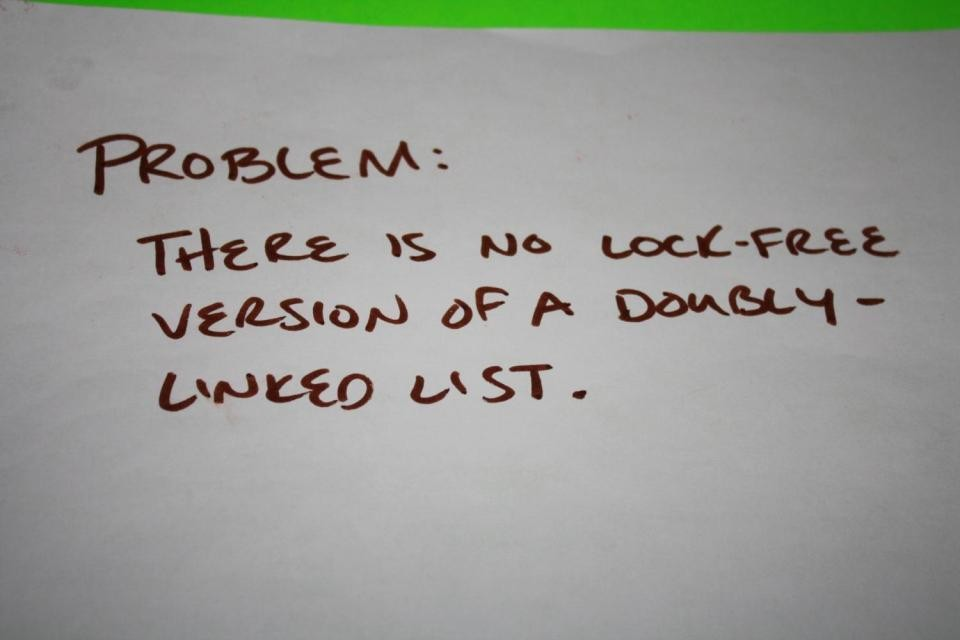 PROBLEM:
THERE IS NO LOCK-FREE
VERSION OF A DOUBLY-
LINKED LIST.